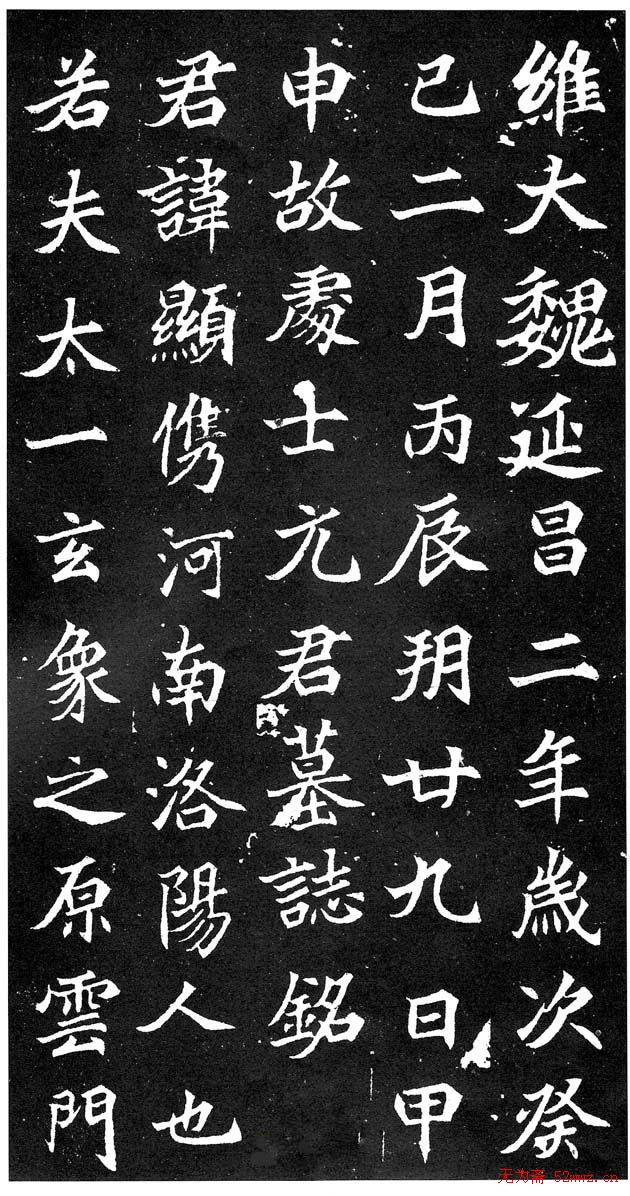 維大魏延昌二年歲次癸
巳二月丙辰玥廿九日甲
申故處士元君墓誌銘
君諱顯儁河南洛陽人也
若夫太一玄象之原雲門
无为斋 52wwz.cn